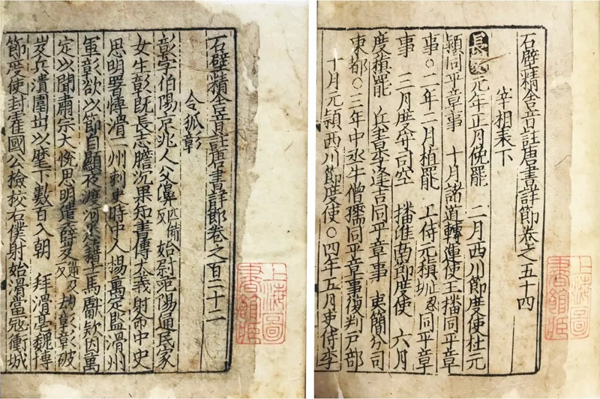 石壁精舍音註唐書詳節卷之五十四
宰相表下
長慶元年正月俛罷 二月西川節度使杜元
穎同平章事 十月諸道轉運使王播同平章
事〇二年二月植罷 工侍元稹 同平章
事 三月度守司空 播淮南節度使 六月
度稹罷 兵書李逢吉同平章事 東簡分司
東都〇三年中丞牛僧孺同平章事復判戶部
十月元穎西川節度使〇四年五月吏侍李
上海圖書館藏
石壁精舍音註唐書詳節卷之百二十二
令狐彰
彰字伯陽京兆人父濞匹備反始尉范陽通民家
女生彰旣長志膽沉果知書傳大義射命中史
思明署博滑二州刺史時中人楊萬定監滑州
軍彰欲以節自顯夜渡河悉籍士馬獻欵因萬
定以聞肅宗大悅思明遣薛岌 劫彰彰破
岌兵潰圍出以麾下數百入朝 拜滑亳魏博
節度使封霍國公檢校右僕射始滑當寇衝城
上海圖書館藏